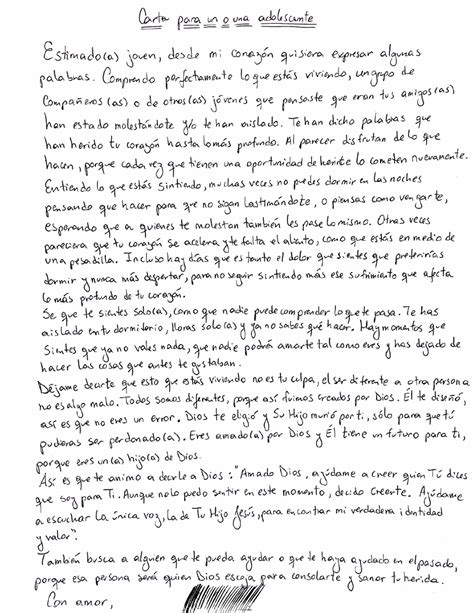 Carta para un o una adolescente
Estimado(a) joven, desde mi corazón quisiera expresar algunas
palabras. Comprendo perfectamente lo que estás viviendo, un grupo de
compañeros(as) o de otros(as) jóvenes que pensaste que eran tus amigos(as)
han estado molestándote y/o te han aislado. Te han dicho palabras que
han herido tu corazón hasta lo más profundo. Al parecer disfrutan de lo que
hacen, porque cada vez que tienen una oportunidad de herirte lo cometen nuevamente.
Entiendo lo que estás sintiendo, muchas veces no puedes dormir en las noches
pensando que hacer para que no sigan lastimándote, o piensas como vengarte,
esperando que a quienes te molestan también les pase lo mismo. Otras veces
pareciera que tu corazón se acelera y te falta el aliento, como que estás en medio de
una pesadilla. Incluso hay días que es tanto el dolor que sientes que preferirías
dormir y nunca más despertar, para no seguir sintiendo más ese sufrimiento que afecta
lo más profundo de tu corazón.
Se que te sientes solo(a), como que nadie puede comprender lo que te pasa. Te has
aislado en tu dormitorio, lloras solo(a) y ya no sabes qué hacer. Hay momentos que
sientes que ya no vales nada, que nadie podrá amarte tal como eres y has dejado de
hacer las cosas que antes te gustaban.
Déjame decirte que esto que estás viviendo no es tu culpa, el ser diferente a otra persona
no es algo malo. Todos somos diferentes, porque así fuimos creados por Dios. Él te diseñó,
así es que no eres un error. Dios te eligió y Su Hijo murió por ti, sólo para que tú
pudieras ser perdonado(a). Eres amado(a) por Dios y Él tiene un futuro para ti,
porque eres un(a) hijo(a) de Dios.
Así es que te animo a decirle a Dios: "Amado Dios, ayúdame a creer quien Tú dices
que soy para Ti. Aunque no lo puedo sentir en este momento, decido creerte. Ayúdame
a escuchar la única voz, la de Tu Hijo Jesús, para encontrar mi verdadera identidad
y valor".
También busca a alguien que te pueda ayudar o que te haya ayudado en el pasado,
porque esa persona será quien Dios escoja para consolarte y sanar tu herida.
Con amor,